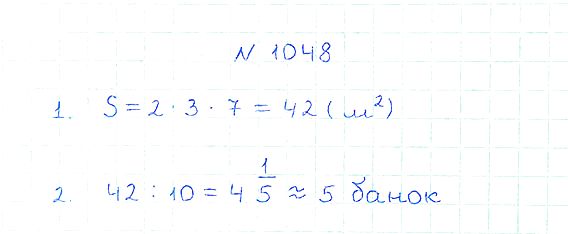 N 1048
1. S = 2 · 3 · 7 = 42 (м²)
2. 42 : 10 = 4 1/5 ≈ 5 банок